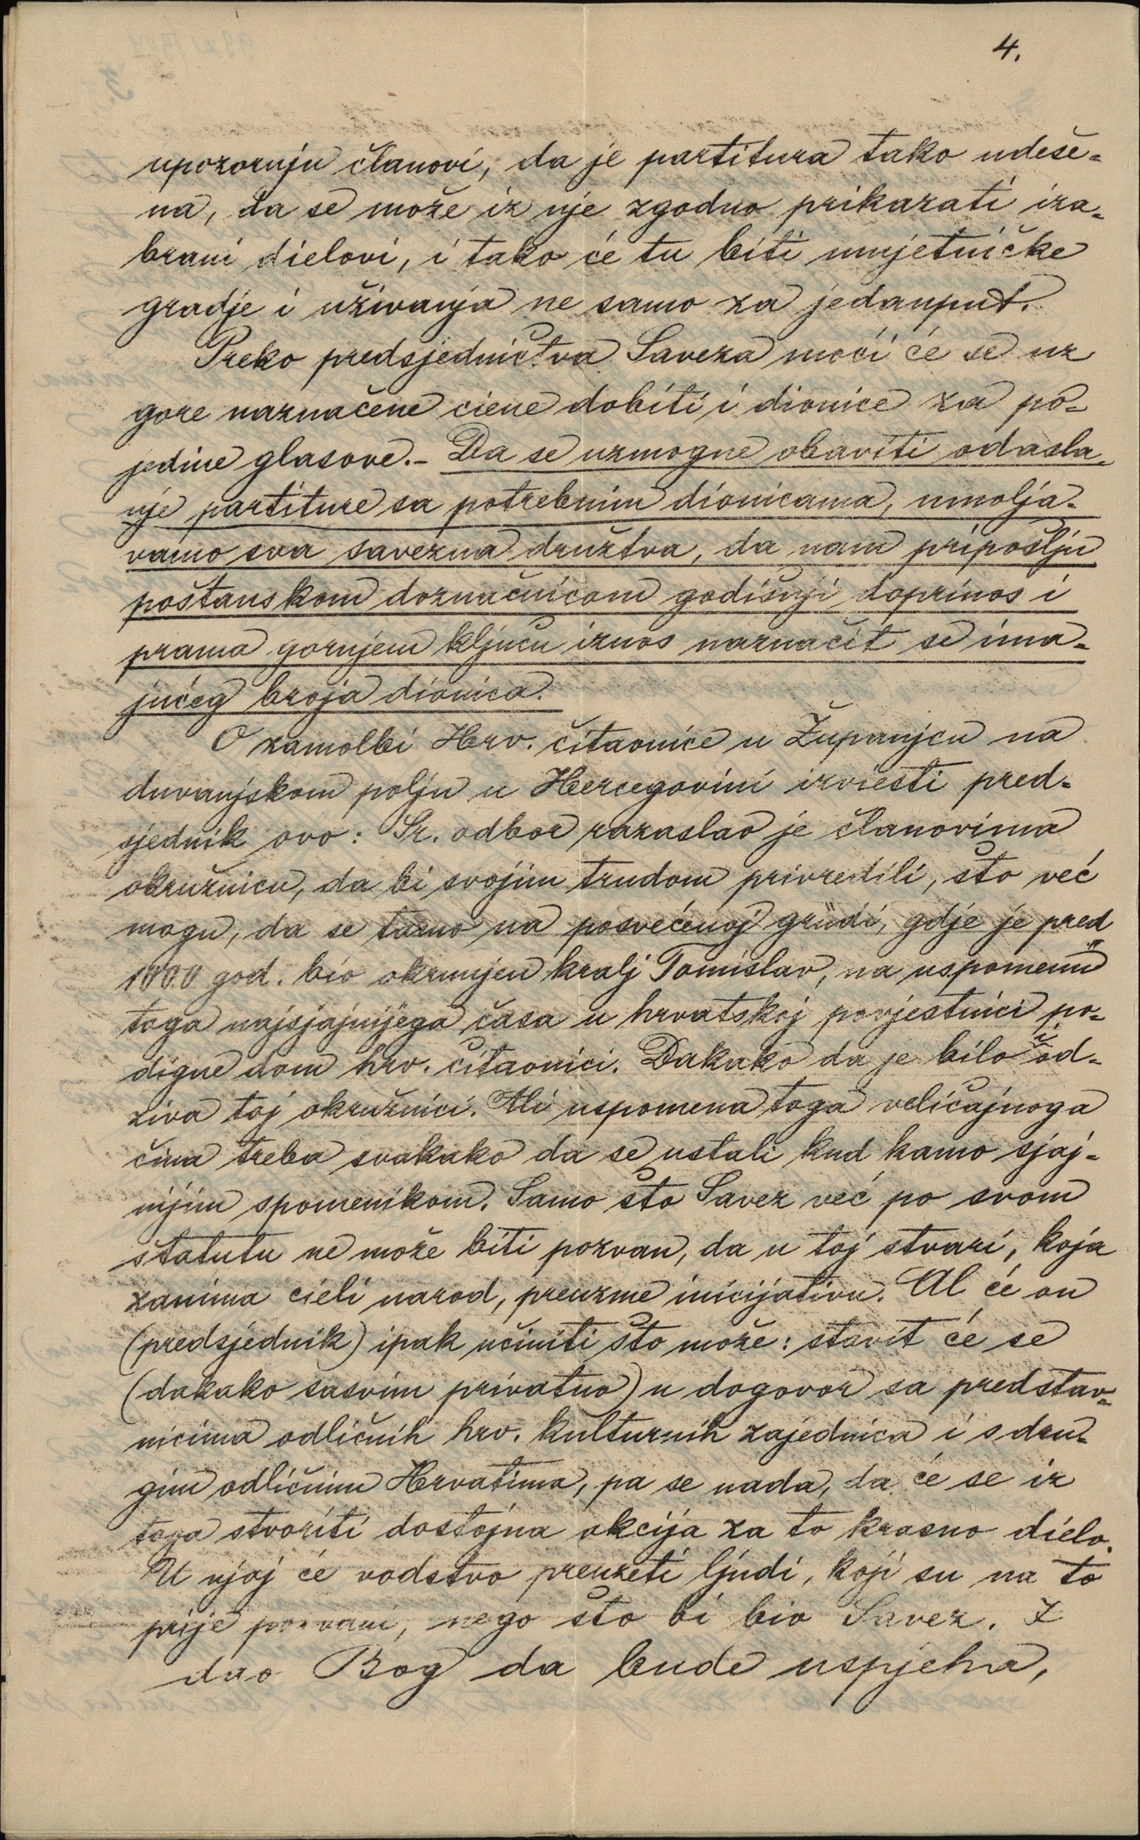 4.
upozoruju članovi, da je partitura tako udeše-
na, da se može iz nje zgodno prikazati iza-
brani dielovi, i tako će tu biti umjetničke
gradje i uživanja ne samo za jedanput.
Preko predsjedničtva Saveza moći će se uz
gore naznačene ciene dobiti i dionice za po-
jedine glasove.- Da se uzmogne obaviti odasla-
nje partiture sa potrebnim dionicama, umolja-
vamo sva savezna družtva, da nam pripošlju
poštanskom doznačnicom godišnji doprinos i
prama gornjem ključu iznos naznačit se ima-
jućeg broja dionica.
O zamolbi Hrv. čitaonice u Županjcu na
duvanjskom polju u Hercegovini izviesti pred-
sjednik ovo: Sr. odbor razaslao je članovima
okružnicu, da bi svojim trudom privredili, što već
mogu, da se tamo na posvećenoj grudi, gdje je pred
1000 god. bio okrunjen kralj Tomislav, na uspomenu
toga najsjajnijega časa u hrvatskoj povjestnici po-
digne dom hrv. čitaonici. Dakako da je bilo i od-
ziva toj okružnici. Ali uspomena toga veličajnoga
čina treba svakako da se ustali kud kamo sjaj-
nijim spomenikom. Samo što Savez već po svom
štatutu ne može biti pozvan, da u toj stvari, koja
zanima cieli narod, preuzme inicijativu. Al će on
(predsjednik) ipak učiniti što može: stavit će se
(dakako sasvim privatno) u dogovor sa predstav-
nicima odličnih hrv. kulturnih zajednica i s dru-
gim odličnim Hrvatima, pa se nada, da će se iz
toga stvoriti dostojna akcija za to krasno dielo.
U njoj će vodstvo preuzeti ljudi, koji su na to
prije pozvani, nego što bi bio Savez. I
dao Bog da bude uspjeha,